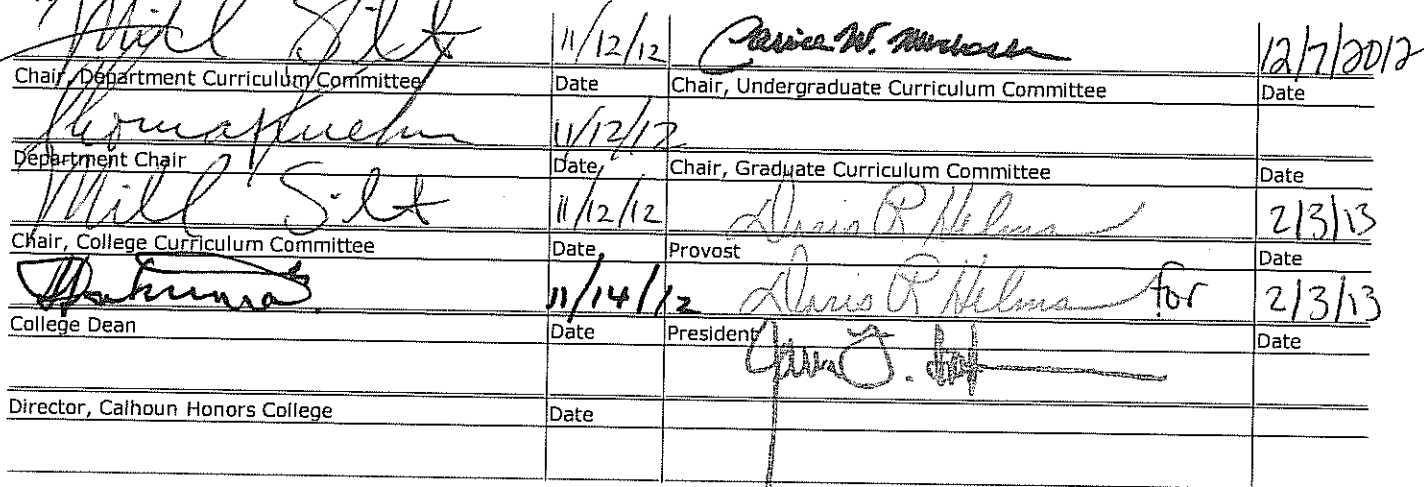 11/12/12 12/7/2012
Chair, Department Curriculum Committee Date Chair, Undergraduate Curriculum Committee Date
11/12/12
Department Chair Date Chair, Graduate Curriculum Committee Date
11/12/12 Doris R Helms 2/3/13
Chair, College Curriculum Committee Date Provost Date
11/14/12 Doris R Helms for 2/3/13
College Dean Date President Date
Director, Calhoun Honors College Date